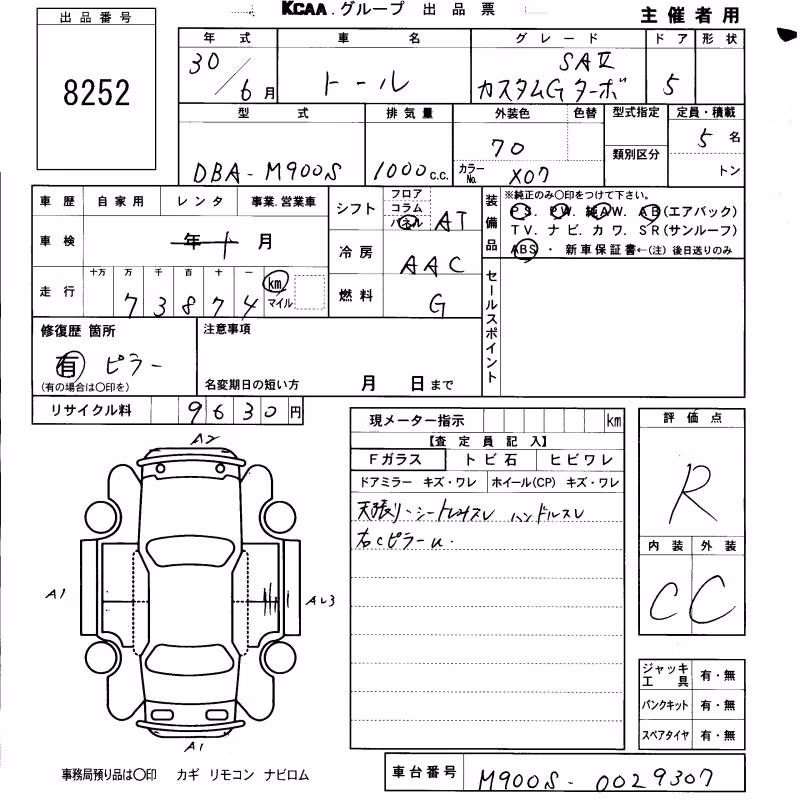 KCAA.グループ 出品票
主催者用
出品番号
8252
年式 車名 グレード ドア 形状
30/6月 トール SAⅡ カスタムG ターボ 5
型式 排気量 外装色 色替 型式指定 定員・積載
類別区分
DBA-M900S 1000c.c. 70 カラーNo. X07 5名
トン
車歴 自家用 レンタ 事業.営業車
シフト フロア コラム パネル AT
車検 年 月
冷房 AAC
走行 十万 万 千 百 十 一
73874 km マイル
燃料 G
装備品 ※純正のみ○印をつけて下さい。
PS. PW. 純AW. AB(エアバック)
TV. ナビ. カワ. SR(サンルーフ)
ABS ・ 新車保証書←(注) 後日送りのみ
セールスポイント
修復歴 箇所
有 ピラー
(有の場合は○印を)
注意事項
名変期日の短い方 月 日まで
リサイクル料 9630円
現メーター指示 km
【査定員記入】
Fガラス トビ石 ヒビワレ
ドアミラー キズ・ワレ ホイール(CP) キズ・ワレ
天張り、シートレスレ ハンドルスレ
右Cピラーu.
評価点
R
内装 外装
C C
A2
A1
AU3
A1
ジャッキ工具 有・無
パンクキット 有・無
スペアタイヤ 有・無
事務局預り品は○印 カギ リモコン ナビロム
車台番号 M900S-0029307